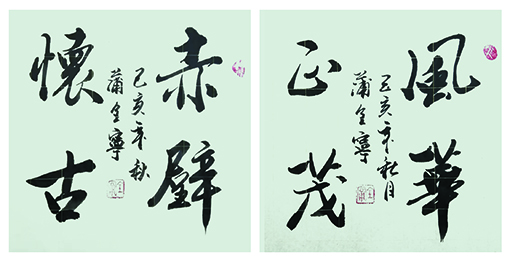 赤壁
懷古
己亥年秋
蒲寧
風華
正茂
己亥年秋月
蒲寧